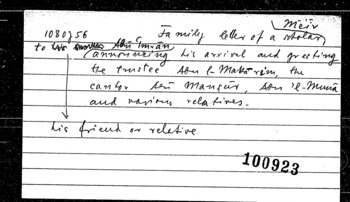 Meir
1080 J 56 Family letter of a scholar
to his Abū ʿImrān, announcing his arrival and greeting
the trustee Abu l-Makārim, the
cantor Abū Manṣūr, Abu 'l-Munā
and various relatives.
his friend or relative
100923